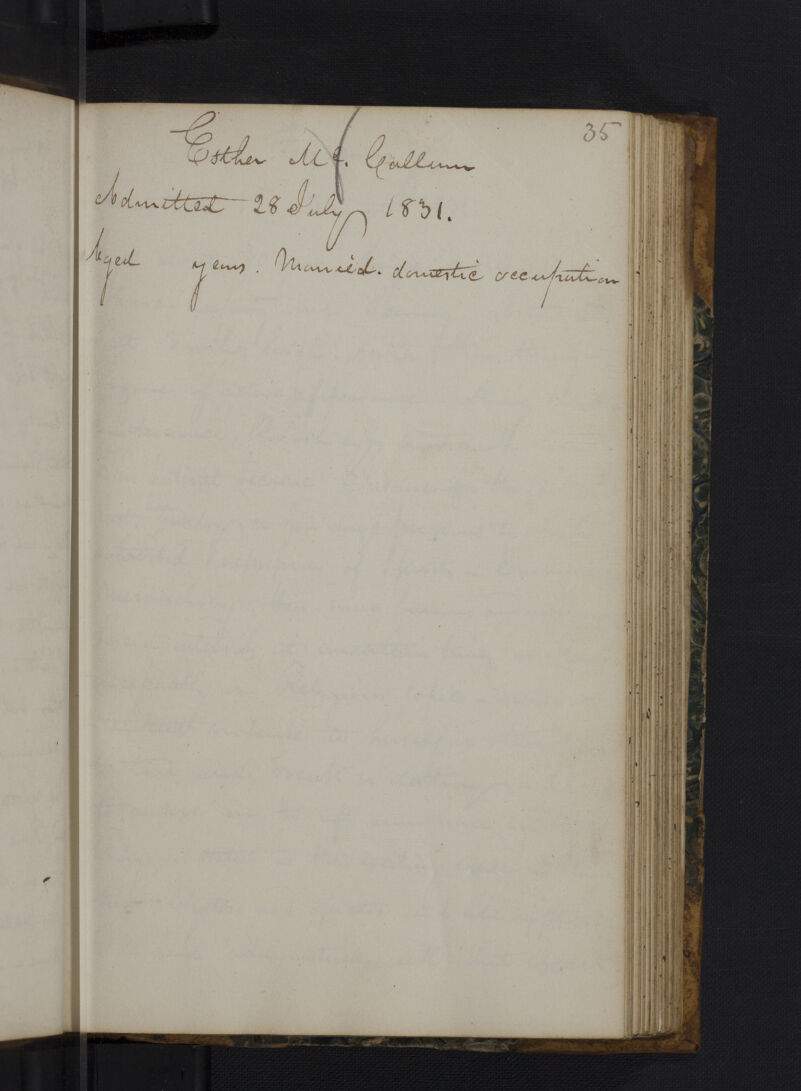 35
Esther Mc. Callum
Admitted 28 July 1831.
Aged years. Married. domestic occupation